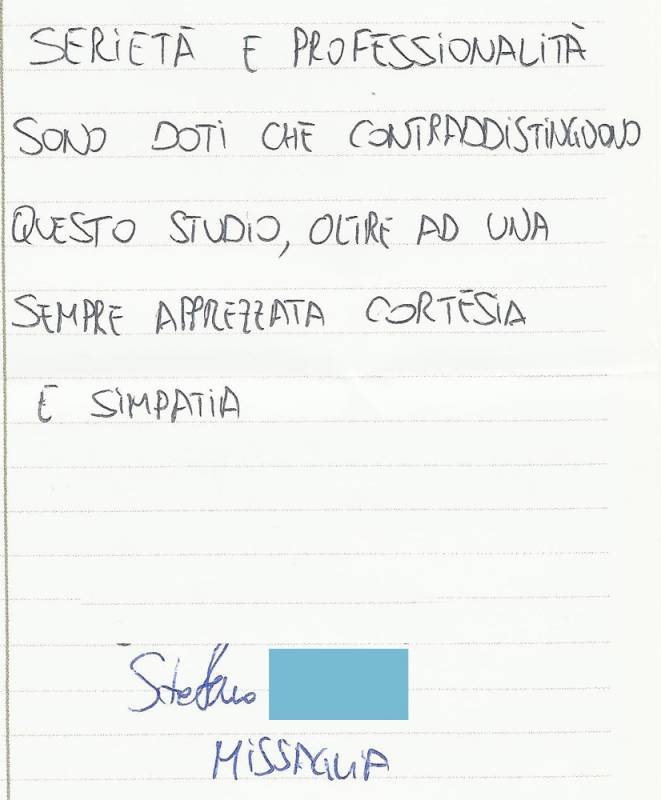 SERIETÀ E PROFESSIONALITÀ
SONO DOTI CHE CONTRADDISTINGUONO
QUESTO STUDIO, OLTRE AD UNA
SEMPRE APPREZZATA CORTESIA
E SIMPATIA
Stefano
MISSAGLIA